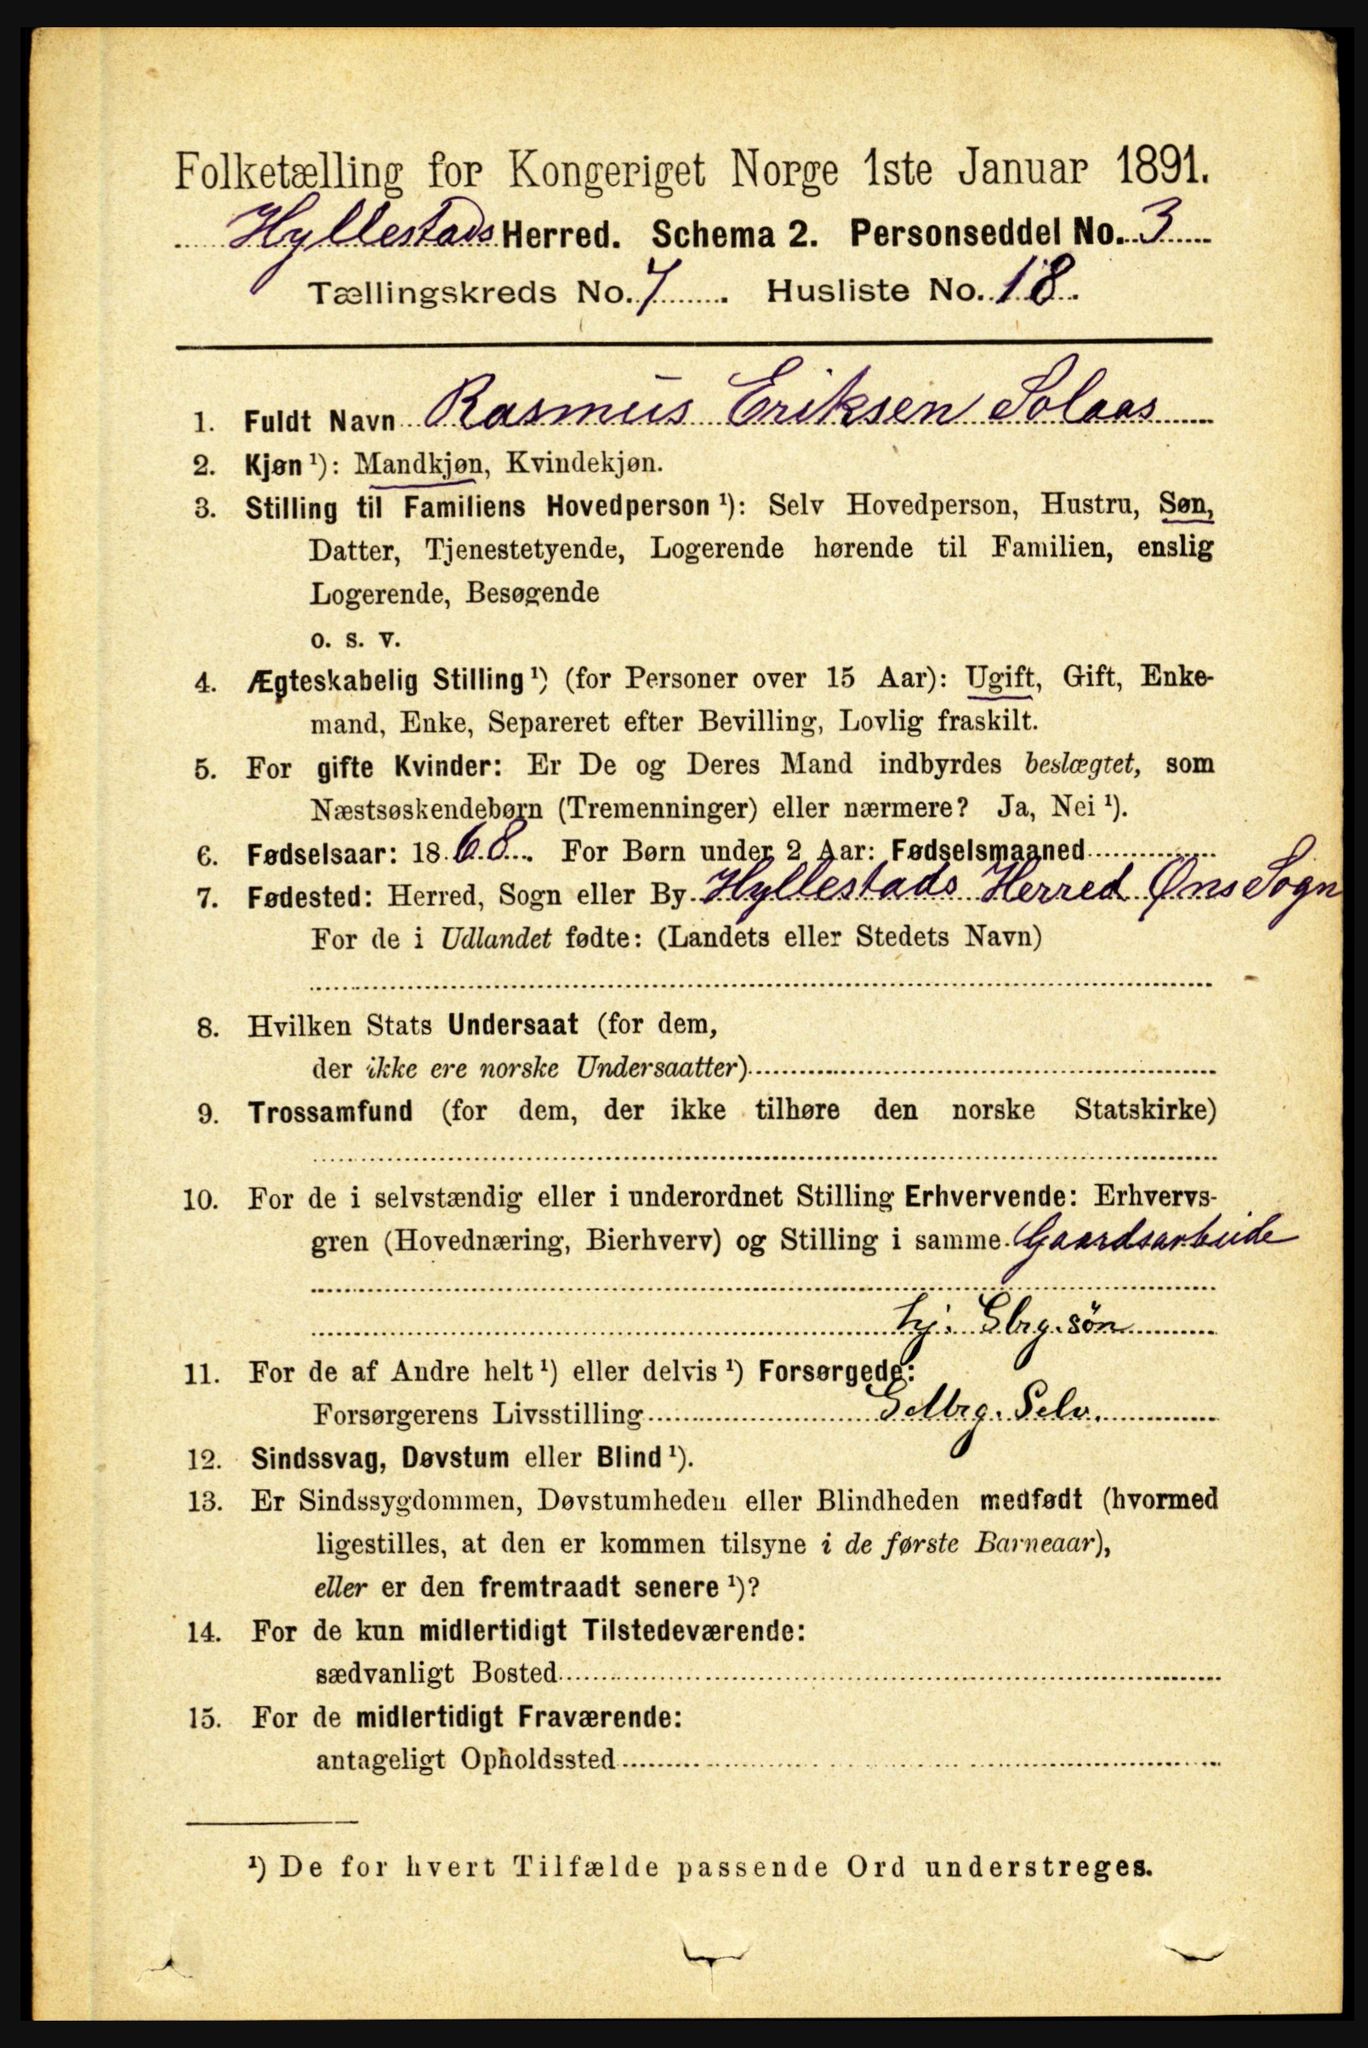 Folketælling for Kongeriget Norge 1ste Januar 1891.
Hyllestads Herred. Schema 2. Personseddel No. 3
Tællingskreds No. 7 . Husliste No. 18.
1. Fuldt Navn Rasmus Eriksen Solaas
2. Kjøn ¹): Mandkjøn, Kvindekjøn.
3. Stilling til Familiens Hovedperson ¹): Selv Hovedperson, Hustru, Søn,
Datter, Tjenestetyende, Logerende hørende til Familien, enslig
Logerende, Besøgende
o. s. v.
4. Ægteskabelig Stilling ¹) (for Personer over 15 Aar): Ugift, Gift, Enke-
mand, Enke, Separeret efter Bevilling, Lovlig fraskilt.
5. For gifte Kvinder: Er De og Deres Mand indbyrdes beslægtet, som
Næstsøskendebørn (Tremenninger) eller nærmere? Ja, Nei ¹).
6. Fødselsaar: 1868. For Børn under 2 Aar: Fødselsmaaned
7. Fødested: Herred, Sogn eller By Hyllestads Herred Øns Sogn
For de i Udlandet fødte: (Landets eller Stedets Navn)
8. Hvilken Stats Undersaat (for dem,
der ikke ere norske Undersaatter)
9. Trossamfund (for dem, der ikke tilhøre den norske Statskirke)
10. For de i selvstændig eller i underordnet Stilling Erhvervende: Erhvervs-
gren (Hovednæring, Bierhverv) og Stilling i samme Gaardsarbeide
Gbrg. søn
11. For de af Andre helt ¹) eller delvis ¹) Forsørgede:
Forsørgerens Livsstilling Selv.
12. Sindssvag, Døvstum eller Blind ¹).
13. Er Sindssygdommen, Døvstumheden eller Blindheden medfødt (hvormed
ligestilles, at den er kommen tilsyne i de første Barneaar),
eller er den fremtraadt senere ¹)?
14. For de kun midlertidigt Tilstedeværende:
sædvanligt Bosted
15. For de midlertidigt Fraværende:
antageligt Opholdssted
¹) De for hvert Tilfælde passende Ord understreges.